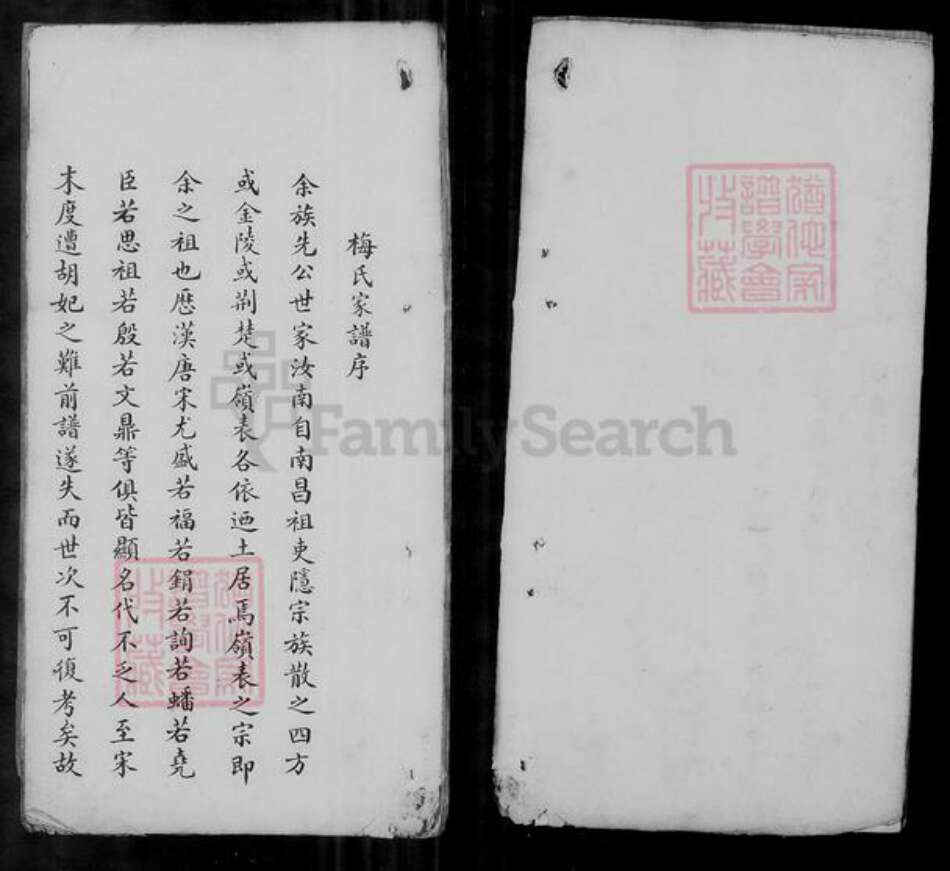 梅氏家譜序
余族先公世家汝南自南昌祖吏隱宗族散之四方
或金陵或荆楚或嶺表各依迺土居焉嶺表之宗即
余之祖也歷漢唐宋尤盛若福若鋗若詢若蟠若堯
臣若思祖若殷若文鼎等俱皆顯名代不乏人至宋
末度遭胡妃之難前譜遂失而世次不可復考矣故
FamilySearch